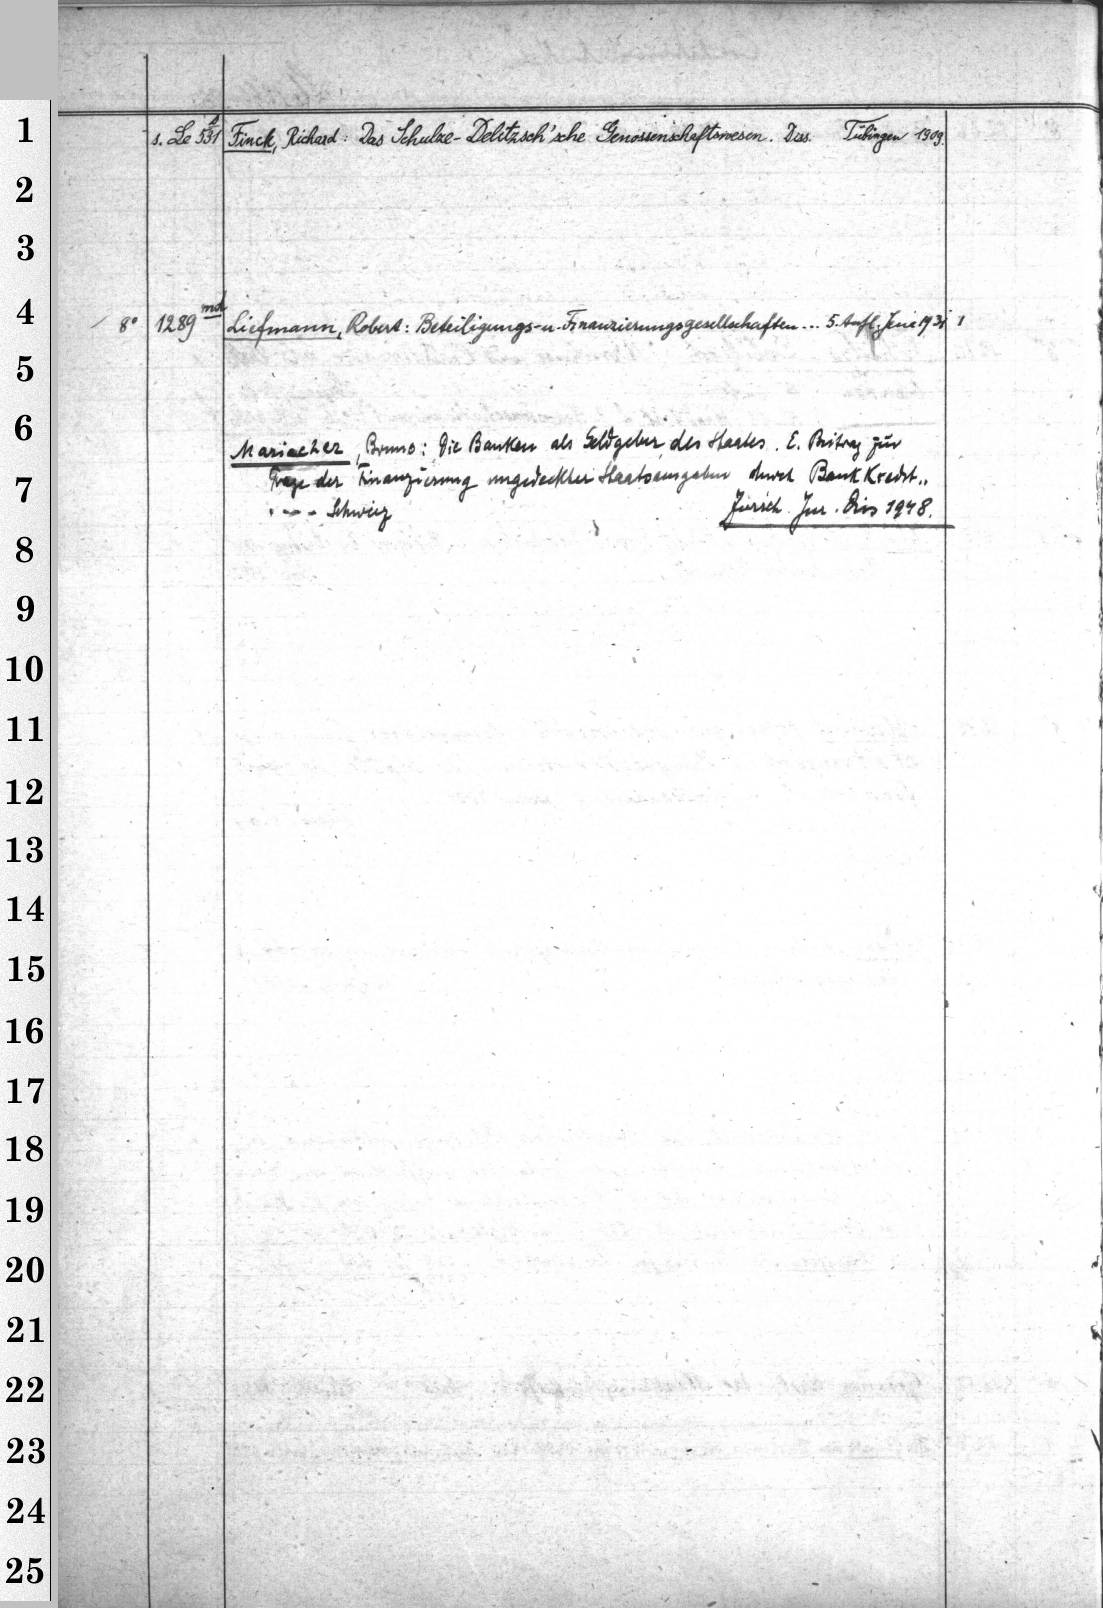 1 s. Le 531 Finck, Richard: Das Schulze-Delitzsch'sche Genossenschaftswesen. Diss. Tübingen 1909.
2
3
4 8° 1289 md Liefmann, Robert: Beteiligungs-u-Finanzierungsgesellschaften... 5. Aufl. Jena 1931 1
5
6 Mariacher, Bruno: Die Banken als Geldgeber des Staates. E. Beitrag zur
7 Frage der Finanzierung ungedeckter Staatsausgaben durch Bankkredit..
Schweiz Zürich Jur. Dis 1948.
8
9
10
11
12
13
14
15
16
17
18
19
20
21
22
23
24
25